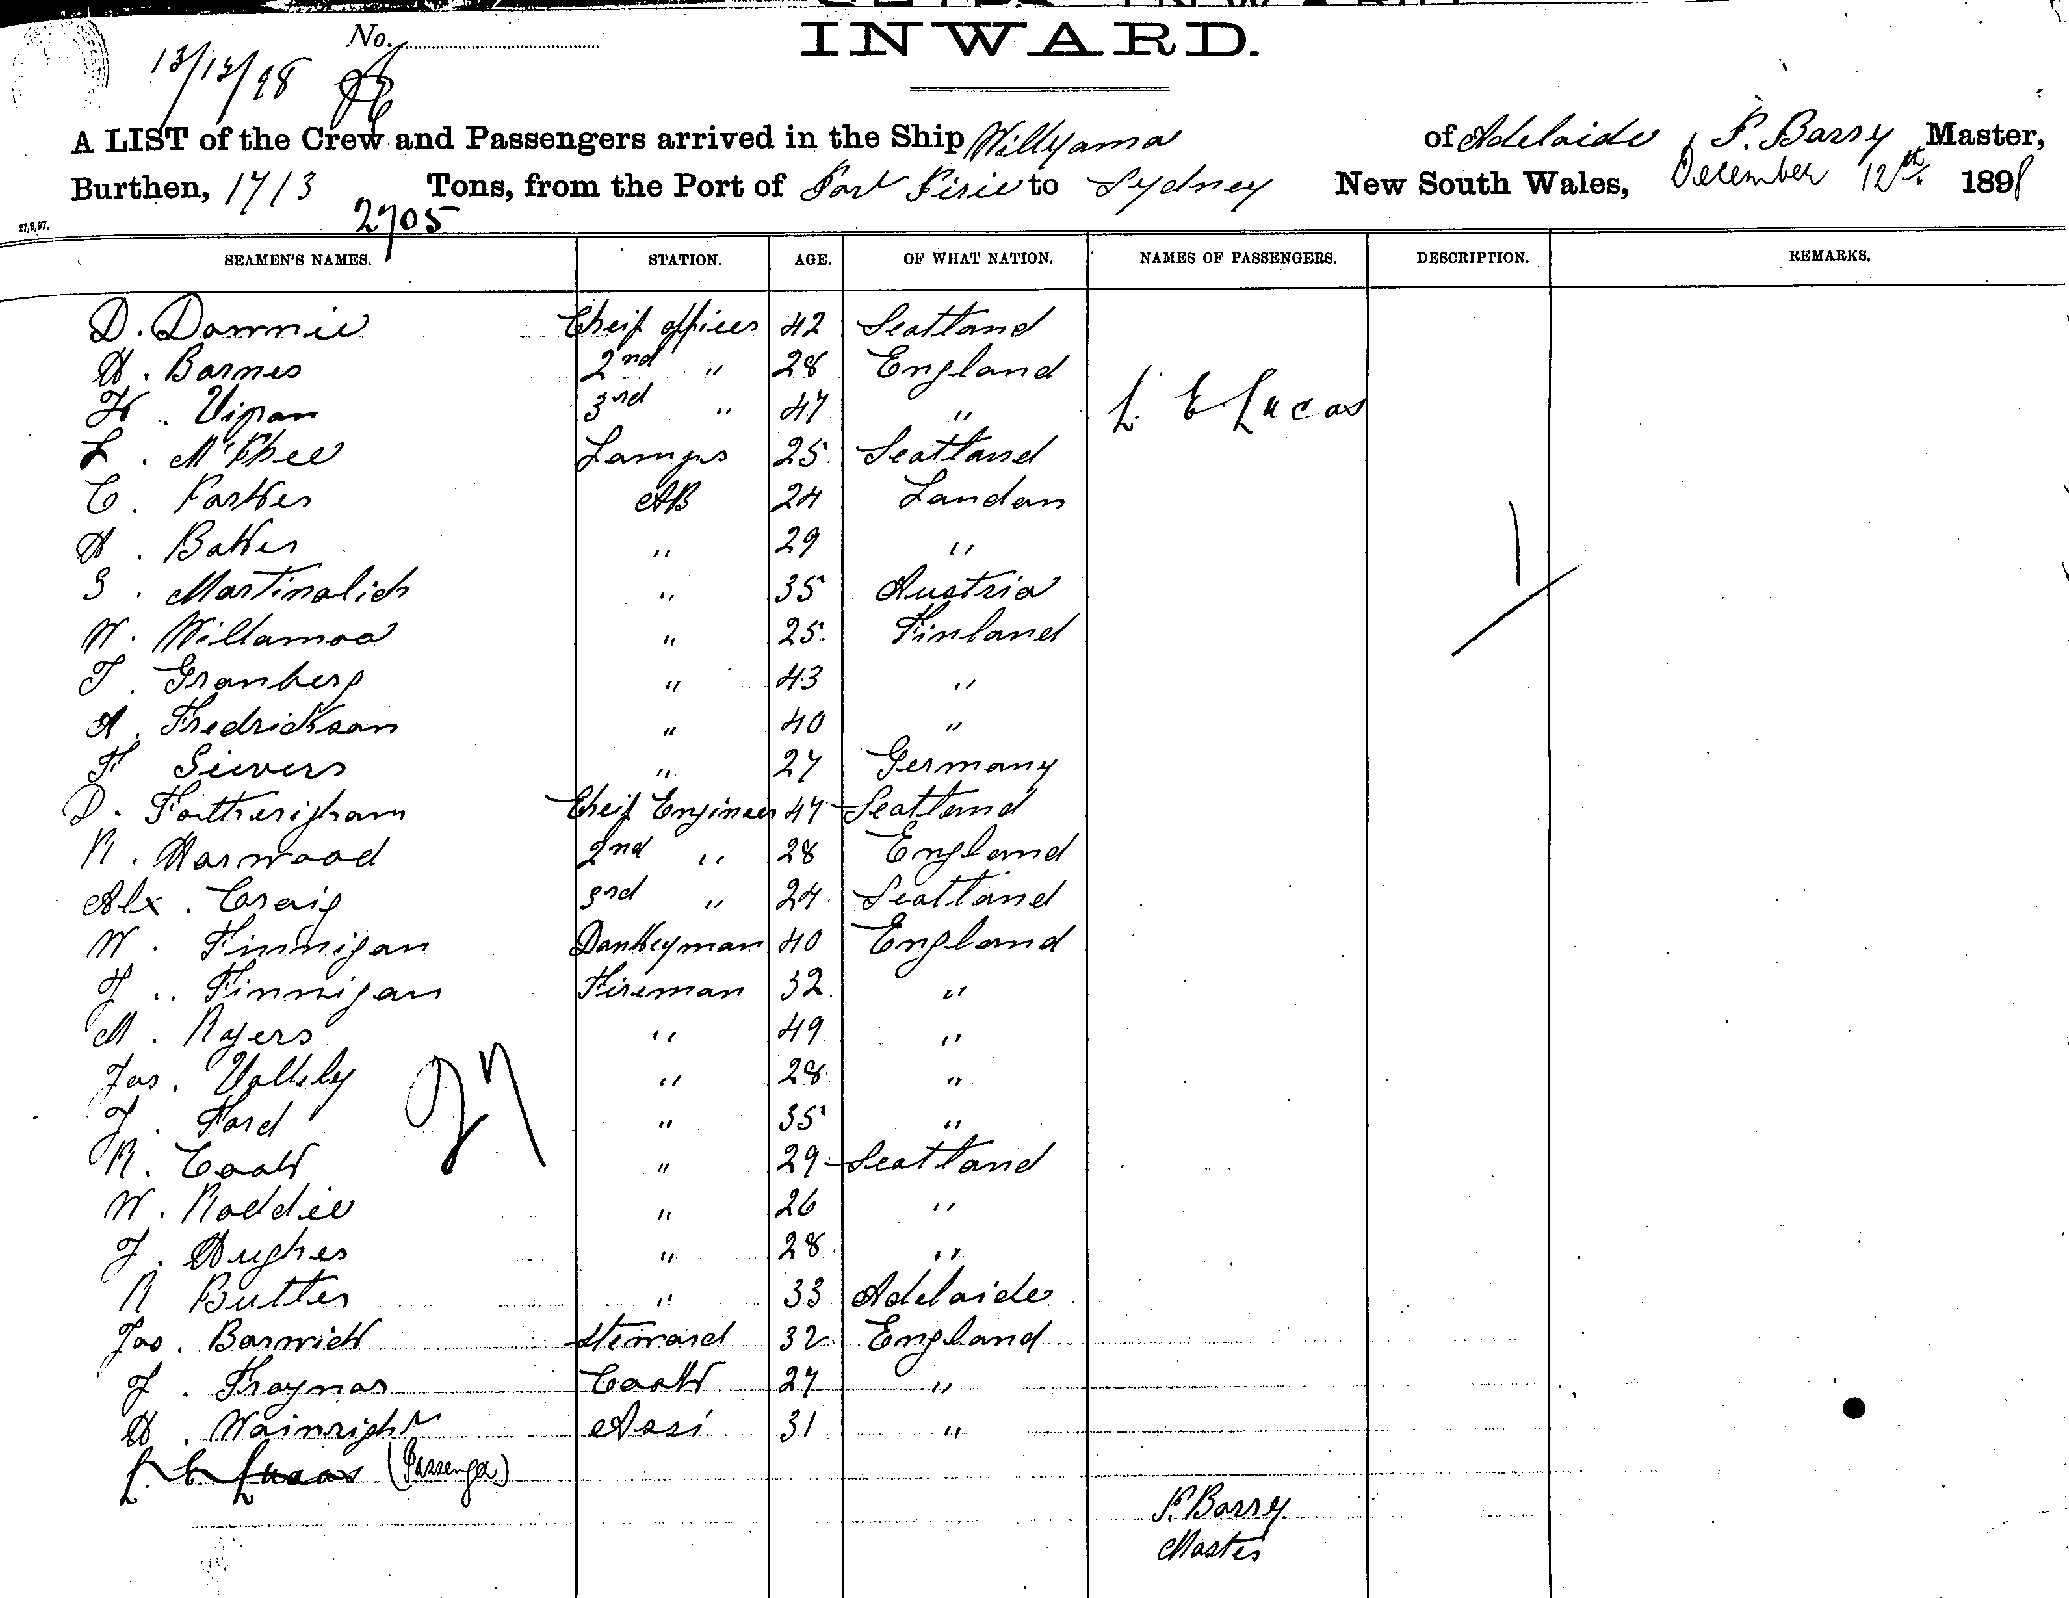 INWARD.
No.
13/12/98
A LIST of the Crew and Passengers arrived in the Ship Willyama of Adelaide, P. Barry Master,
Burthen, 1713 Tons, from the Port of Port Pirie to Sydney New South Wales, December 12th 1898
2705
27,9,97.
SEAMEN'S NAMES. STATION. AGE. OF WHAT NATION. NAMES OF PASSENGERS. DESCRIPTION. REMARKS.
D. Downie Cheif officer 42 Scotland
H. Barnes 2nd " 28 England
H. Vipan 3rd " 47 " L. E Lucas
L. McPhee Lamps 25 Scotland
C. Parker AB 24 London
H. Baker " 29 " 1
S. Martinolich " 35 Austria
W. Willamoa " 25 Finland
T. Granberg " 43 "
A. Fredrickson " 40 "
F Sievers " 27 Germany
D. Fortherigham Cheif Engineer 47 Scotland
R. Harwood 2nd " 28 England
Alx. Craig 3rd " 24 Scotland
W. Finnigan Donkeyman 40 England
J.. Finnigan Fireman 32 "
M. Ryers " 49 "
Jas. Vallely " 28 "
J. Ford " 35 "
27
R. Cook " 29 Scotland
W. Roddie " 26 "
J. Hughes " 28 "
R Butler " 33 Adelaide
Jas. Barwick Steward 32 England
J. Traynor Cook 27 "
H. Wainright Assi 31 "
L. E. Lucas (Passenger)
P. Barry
Master